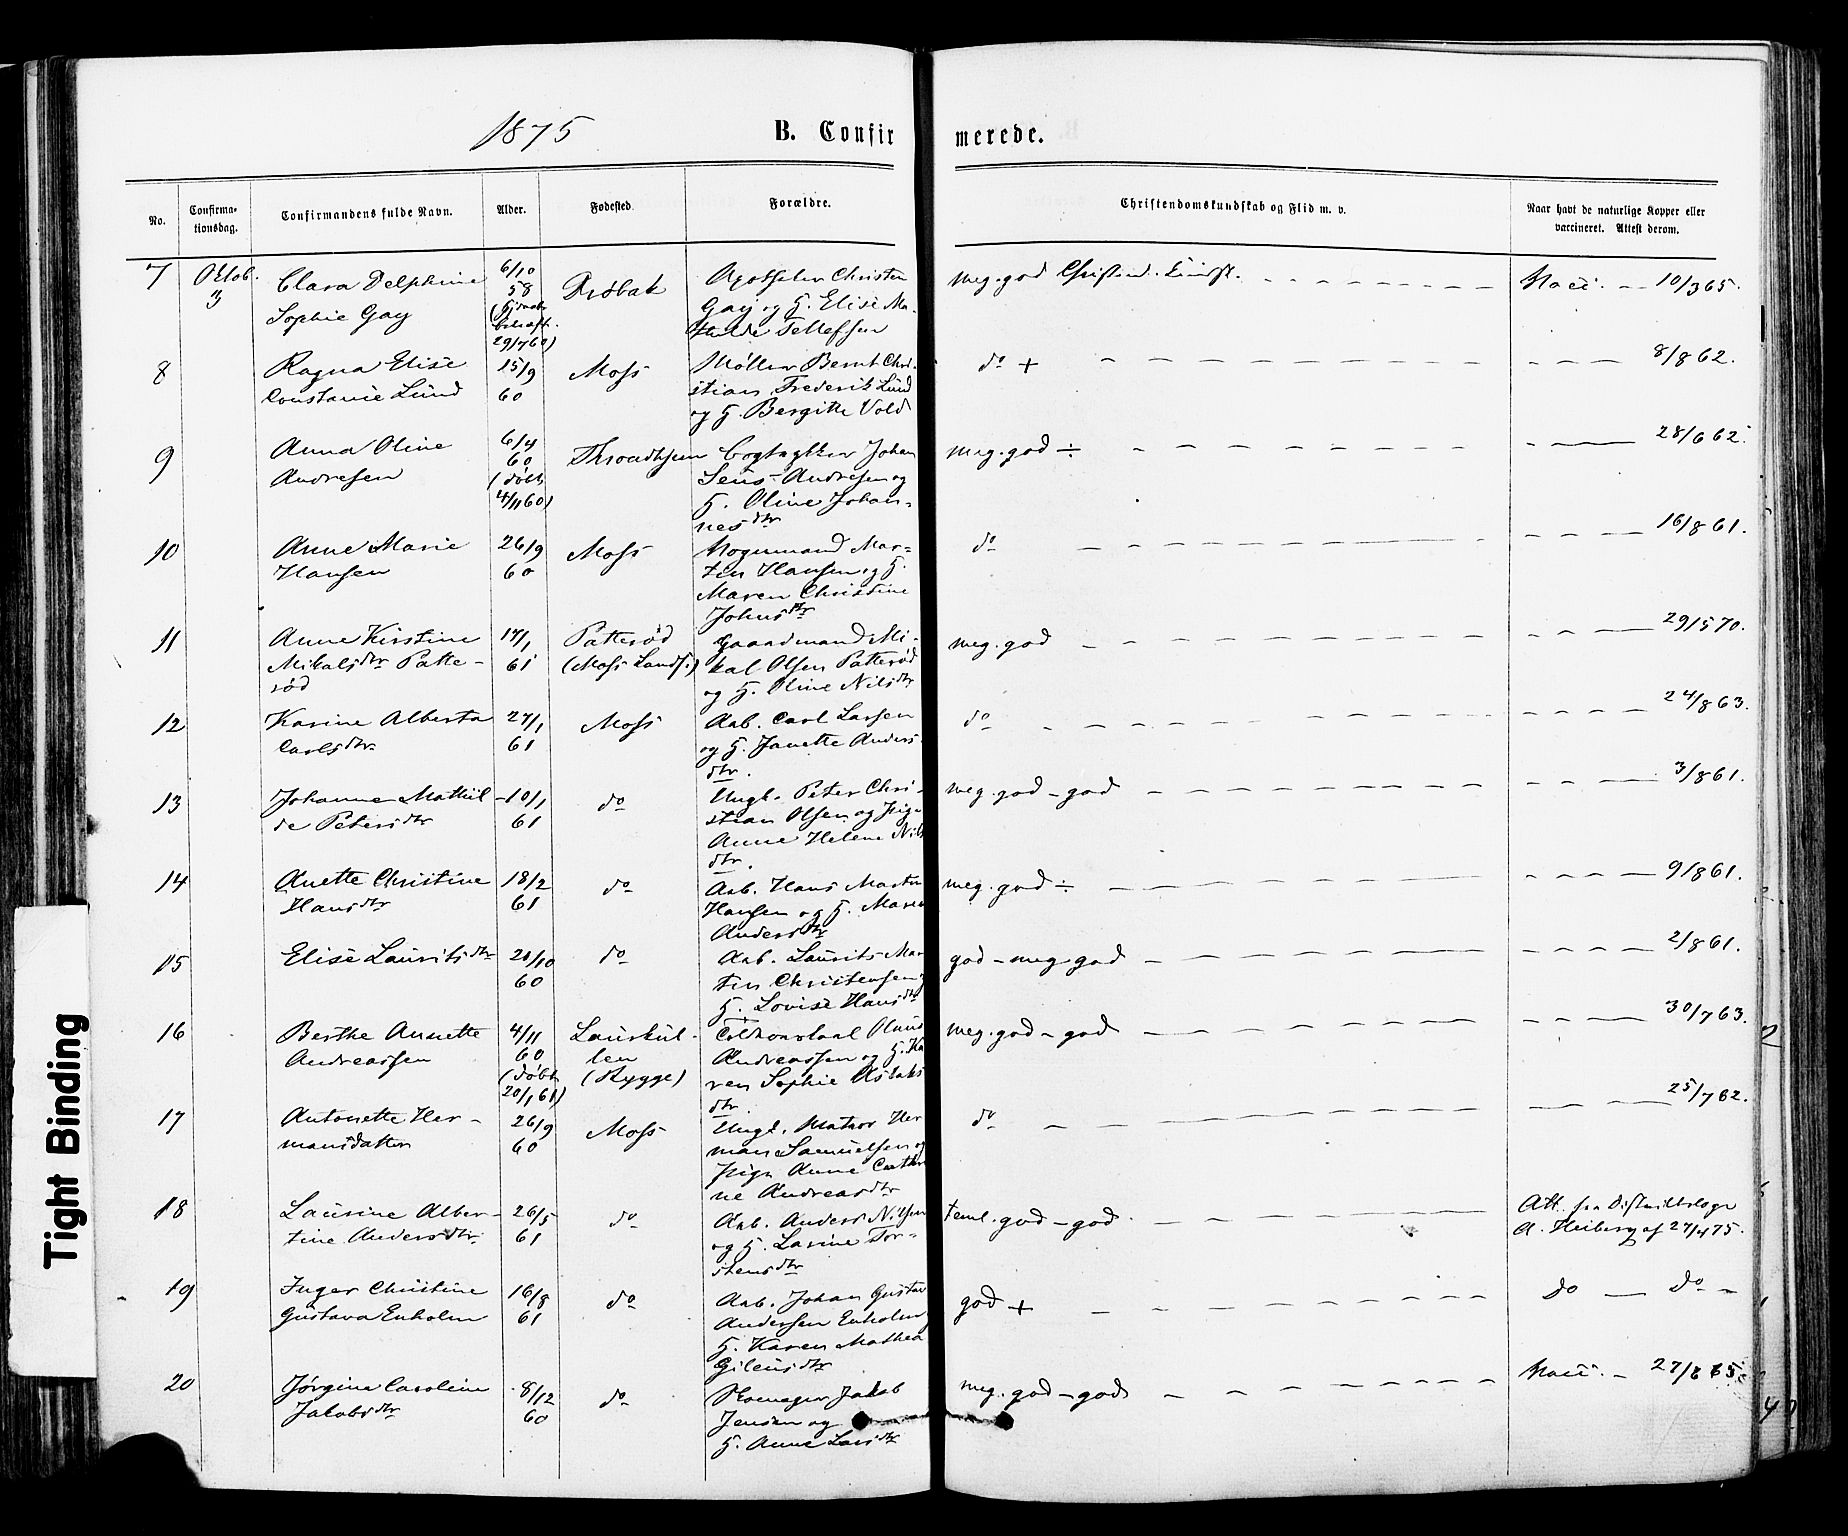 1875
B. Confirmerede.
No. Confirmationsdag. Confirmandens fulde Navn. Alder. Fødested. Forældre. Christendomskundskab og Flid m. v. Naar havt de naturlige Kopper eller vaccineret. Attest derom.
7 Oktob. 3 Clara Delphine 6/10 Drøbak Apotheker Christen meg. god Christend. Kundsk. Vacc. 10/3 65.
Sophie Gay 58 Gay og H. Elise Ma-
29/7 60) thilde Tellefsen
8 Ragna Elise 15/9 Moss Møller Bernt Chri- do + 8/8 62.
Constanse Lund 60 stian Frederik Lund
og H. Bergitte Vold
9 Anna Oline 6/4 Throndhjem Bogtrykker Johan meg. god ÷ 28/6 62.
Andresen 60 Andresen og
(døbt H. Oline Johan-
4/11 60) nesdtr
10 Anne Marie 26/9 Moss Vognmand Mar- do 16/8 61.
Hansen 60 tin Hansen og H.
Maren Christine
Johnsdtr
11 Anne Kirstine 17/1 Patterød Gaardmand Mi- meg. god 29/5 70.
Mikalsdtr Patte- 61 (Moss Lands.) kal Olsen Patterød
rød og H. Oline Nilsdtr
12 Karine Alberta 27/1 Moss Arb. Carl Larsen do 24/8 63.
Carlsdtr. 61 og H. Janette Anders-
dtr.
13 Johanne Mathil- 10/1 do Ungk. Peter Chri- meg. god - god 3/8 61.
de Petersdtr 61 stian Olsen og Pige
Anne Helene Nils
dtr.
14 Anette Christine 18/2 do Arb. Hans Martin meg. god ÷ 9/8 61.
Hansdtr 61 Hansen og H. Maren
Andersdtr
15 Elise Lauritsdtr 21/10 do Arb. Laurits Mar god - meg. god 2/8 61.
60 tin Christensen og
H. Lovise Hansdtr
16 Berthe Annette 4/11 Laurkul- Toldkontroll. Olaus meg. god - god 30/7 63.
Andreassen 60 len Andreassen og H. Ka
(døbt (Rygge) ren Sophie Aslaks
20/1 61) dtr.
17 Antonette Her- 26/9 Moss Ungk. Matros Her do 25/7 62.
mansdatter 60 man Samuelsen og
Pige Anne Cathri
ne Andreasdtr
18 Laurine Alber- 26/5 do Arb. Anders Nilsen teml. god - god. Att. fra Distriktslæge
tine Andersdtr. 61 og H. Larine Tor- A. Heiberg af 27/4 75.
stensdtr
19 Inger Christine 16/8 do Arb. Johan Gustav god + do do
Gustava Enholm 61 Andersen Enholm
H. Karen Mathea
20 Jørgine Caroline 8/12 do Skomager Jakob meg. god - god Vacc. 27/6 65.
Jakobsdtr 60 Jensen og
H. Anne Larsdtr
Tight Binding